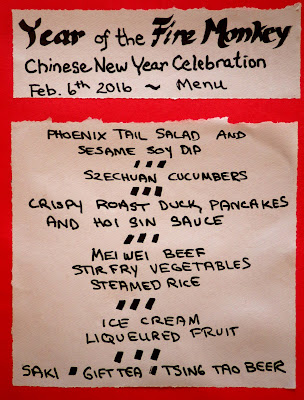 Year of the Fire Monkey
Chinese New Year Celebration
Feb. 6th 2016 ~ Menu
PHOENIX TAIL SALAD AND
SESAME SOY DIP
SZECHUAN CUCUMBERS
CRISPY ROAST DUCK, PANCAKES
AND HOI SIN SAUCE
MEI WEI BEEF
STIR FRY VEGETABLES
STEAMED RICE
ICE CREAM
LIQUEURED FRUIT
SAKI GIFT TEA TSING TAO BEER